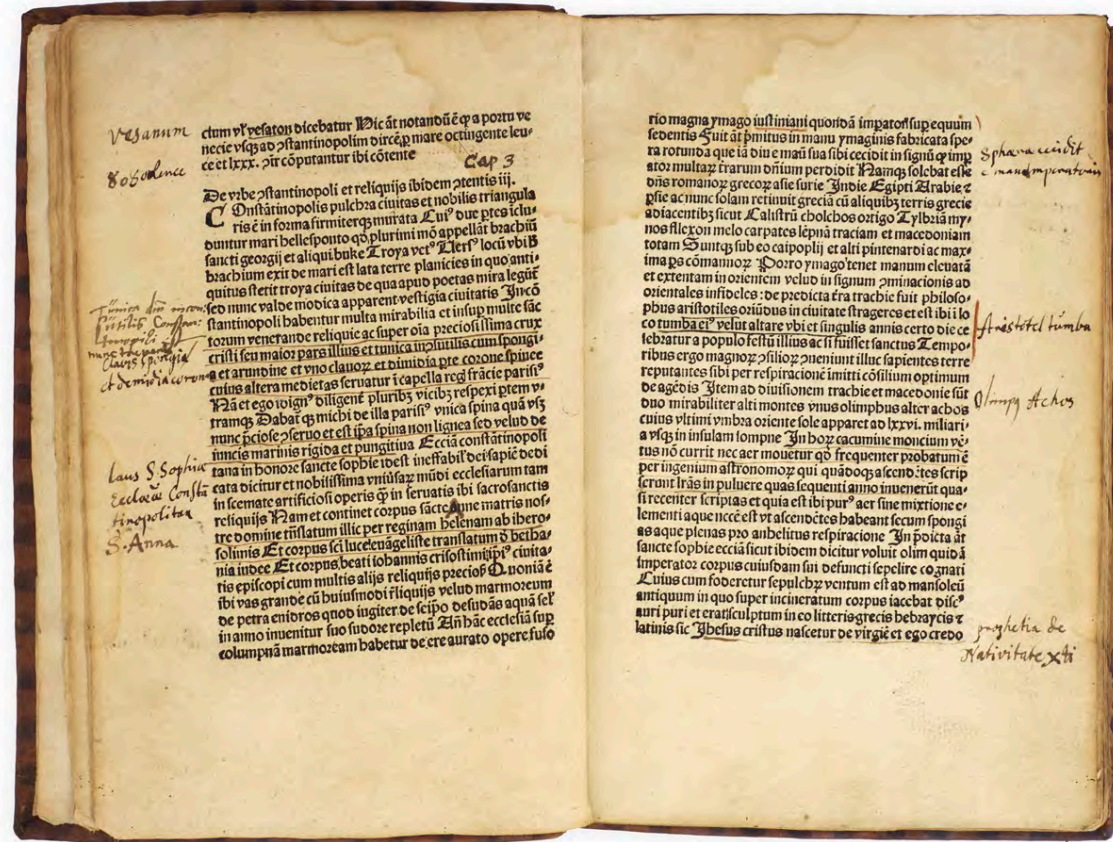 vesanum
8 o 80 lence
ctum vł vesaton dicebatur Hic āt notandū ē ꝙ a portu ve
necie vsqꝫ ad ↄstantinopolim dircē ꝑ mare octingente leu-
ce et lxxx. ↄir cōputantur ibi cōtente
Cap 3
De vrbe ↄstantinopoli et reliquijs ibidem ↄtentis iii.
COnstātinopolis pulchra ciuitas et nobilis triangula
ris ē in forma firmiterqꝫ murata Cui⁹ due ꝑtes iclu-
duntur mari hellesponto qd̄ plurimi mō appellāt brachiū
sancti georgij et aliqui buke Troya vet⁹ Uers⁹ locū vbi B
brachium exit de mari est lata terre planicies in quo anti-
quitus stetit troya ciuitas de qua apud poetas mira legūt͛
sed nunc valde modica apparent vestigia ciuitatis In cō
stantinopoli habentur multa mirabilia et insuꝑ multe sāc
torum venerande reliquie ac super oīa preciosissima crux
cristi seu maior pars illius et tunica incōsutilis cum spongi-
a et arundine et vno clauoꝝ et dimidia ꝑte corone spinee
cuius altera medietas seruatur ī capella reg͛ frācie parisi⁹
Nā et ego īdign⁹ diligent͛ pluribꝫ vicibꝫ respexi ꝑtem v-
tramqꝫ Dabat͛ qꝫ michi de illa parisi⁹ vnica spina quā vsqꝫ
nunc p̄ciose ↄseruo et est īpa spina non lignea sed velud de
iuncis marinis rigida et pungitiua Ecc̄ia constātinopoli
tana in honore sancte sophie idest ineffabil͛ dei sapīe dedi
cata dicitur et nobilissima vniūsaꝝ mūdi ecclesiarum tam
in scemate artificiosi operis q̄ꝫ in seruatis ibi sacrosanctis
reliquijs Nam et continet corpus sācte Anne matris nos-
tre domine trāslatum illic per reginam helenam ab ihero-
solimis Et corpus sc̄i luce euāgeliste translatum d̄ betha-
nia iudee Et corpus beati iohannis crisostimi ipi⁹ ciuita-
tis episcopi cum multis alijs reliquijs preciosꝭ Quoniā ē
ibi vas grande cū huiusmodi r̄liquijs velud marmoreum
de petra enidros quod iugiter de seipo desudās aquā sel͛
in anno inuenitur suo sudore repletū An̄ hāc ecclesiā suꝑ
columpnā marmoream habetur de ere aurato opere fuso
Laus S. Sophiæ
Ecclesiæ Constā
tinopolitan
S. Anna
rio magna ymago iustiniani quondā imꝑatoris suꝑ equum
sedentis Fuit āt p̄mitus in manu ymaginis fabricata spe-
ra rotunda que iā diu e manū sua sibi cecidit in signū ꝙ imꝑ
ator multaꝝ trarum dn̄ium perdidit Namqꝫ solebat esse
dn̄s romanoꝝ grecoꝝ asie surie Indie Egipti Arabie ⁊
ꝑsie ac nunc solam retinuit greciā cū aliquibꝫ terris grecie
adiacentibꝫ sicut Calistrū cholchos ortigo Tylbriā my-
nos flexon melo carpates lēpnā traciam et macedoniam
totam Suntqꝫ sub eo caipoplij et alti pintenardi ac max-
ima ꝑs cōmannoꝝ Porro ymago tenet manum eleuatā
et extentam in orientem velud in signum ↄminacionis ad
orientales infideles : de predicta t͛ra trachie fuit philoso-
phus aristotiles oriūdus in ciuitate strageres et est ibi ī lo
co tumba ei⁹ velut altare vbi et singulis annis certo die ce
lebratur a populo festū illius ac si fuisset sanctus Tempo
ribus ergo magnoꝝ ↄsilioꝝ ↄueniunt illuc sapientes terre
reputantes sibi per respiracionē īmitti cōsilium optimum
de agēdis Item ad diuisionem trachie et macedonie sūt
duo mirabiliter alti montes vnus olimphus alter achos
cuius vltimi vmbra oriente sole apparet ad lxxvi. miliari-
a vsqꝫ in insulam lompne In hoꝝ cacumine moncium vē-
tus nō currit nec aer mouetur qd̄ frequenter probatum ē
per ingenium astronomoꝝ qui quādoqꝫ ascend̄tes scrip
serunt lrās in puluere quas sequenti anno inuenerūt qua-
si recenter scriptas et quia est ibi pur⁹ aer sine mixtione e-
lementi aque nccē est vt ascend̄tes habeant secum spongi
as aque plenas pro anhelitus respiracione In p̄dicta āt
sancte sophie ecc̄ia sicut ibidem dicitur voluit olim quidā
imperator corpus cuiusdam sui defuncti sepelire cognati
Cuius cum foderetur sepulchꝝ ventum est ad mansoleū
antiquum in quo super incineratum corpus iacebat disc⁹
auri puri et erat sculptum in eo litteris grecis hebraycis ⁊
latinis sic Ihesus cristus nascetur de virgīe et ego credo
Sphæra cecidit
e manu Imperatoris
Aristotel tumba
Olimpq Achos
prophetia de
Nativitate xti